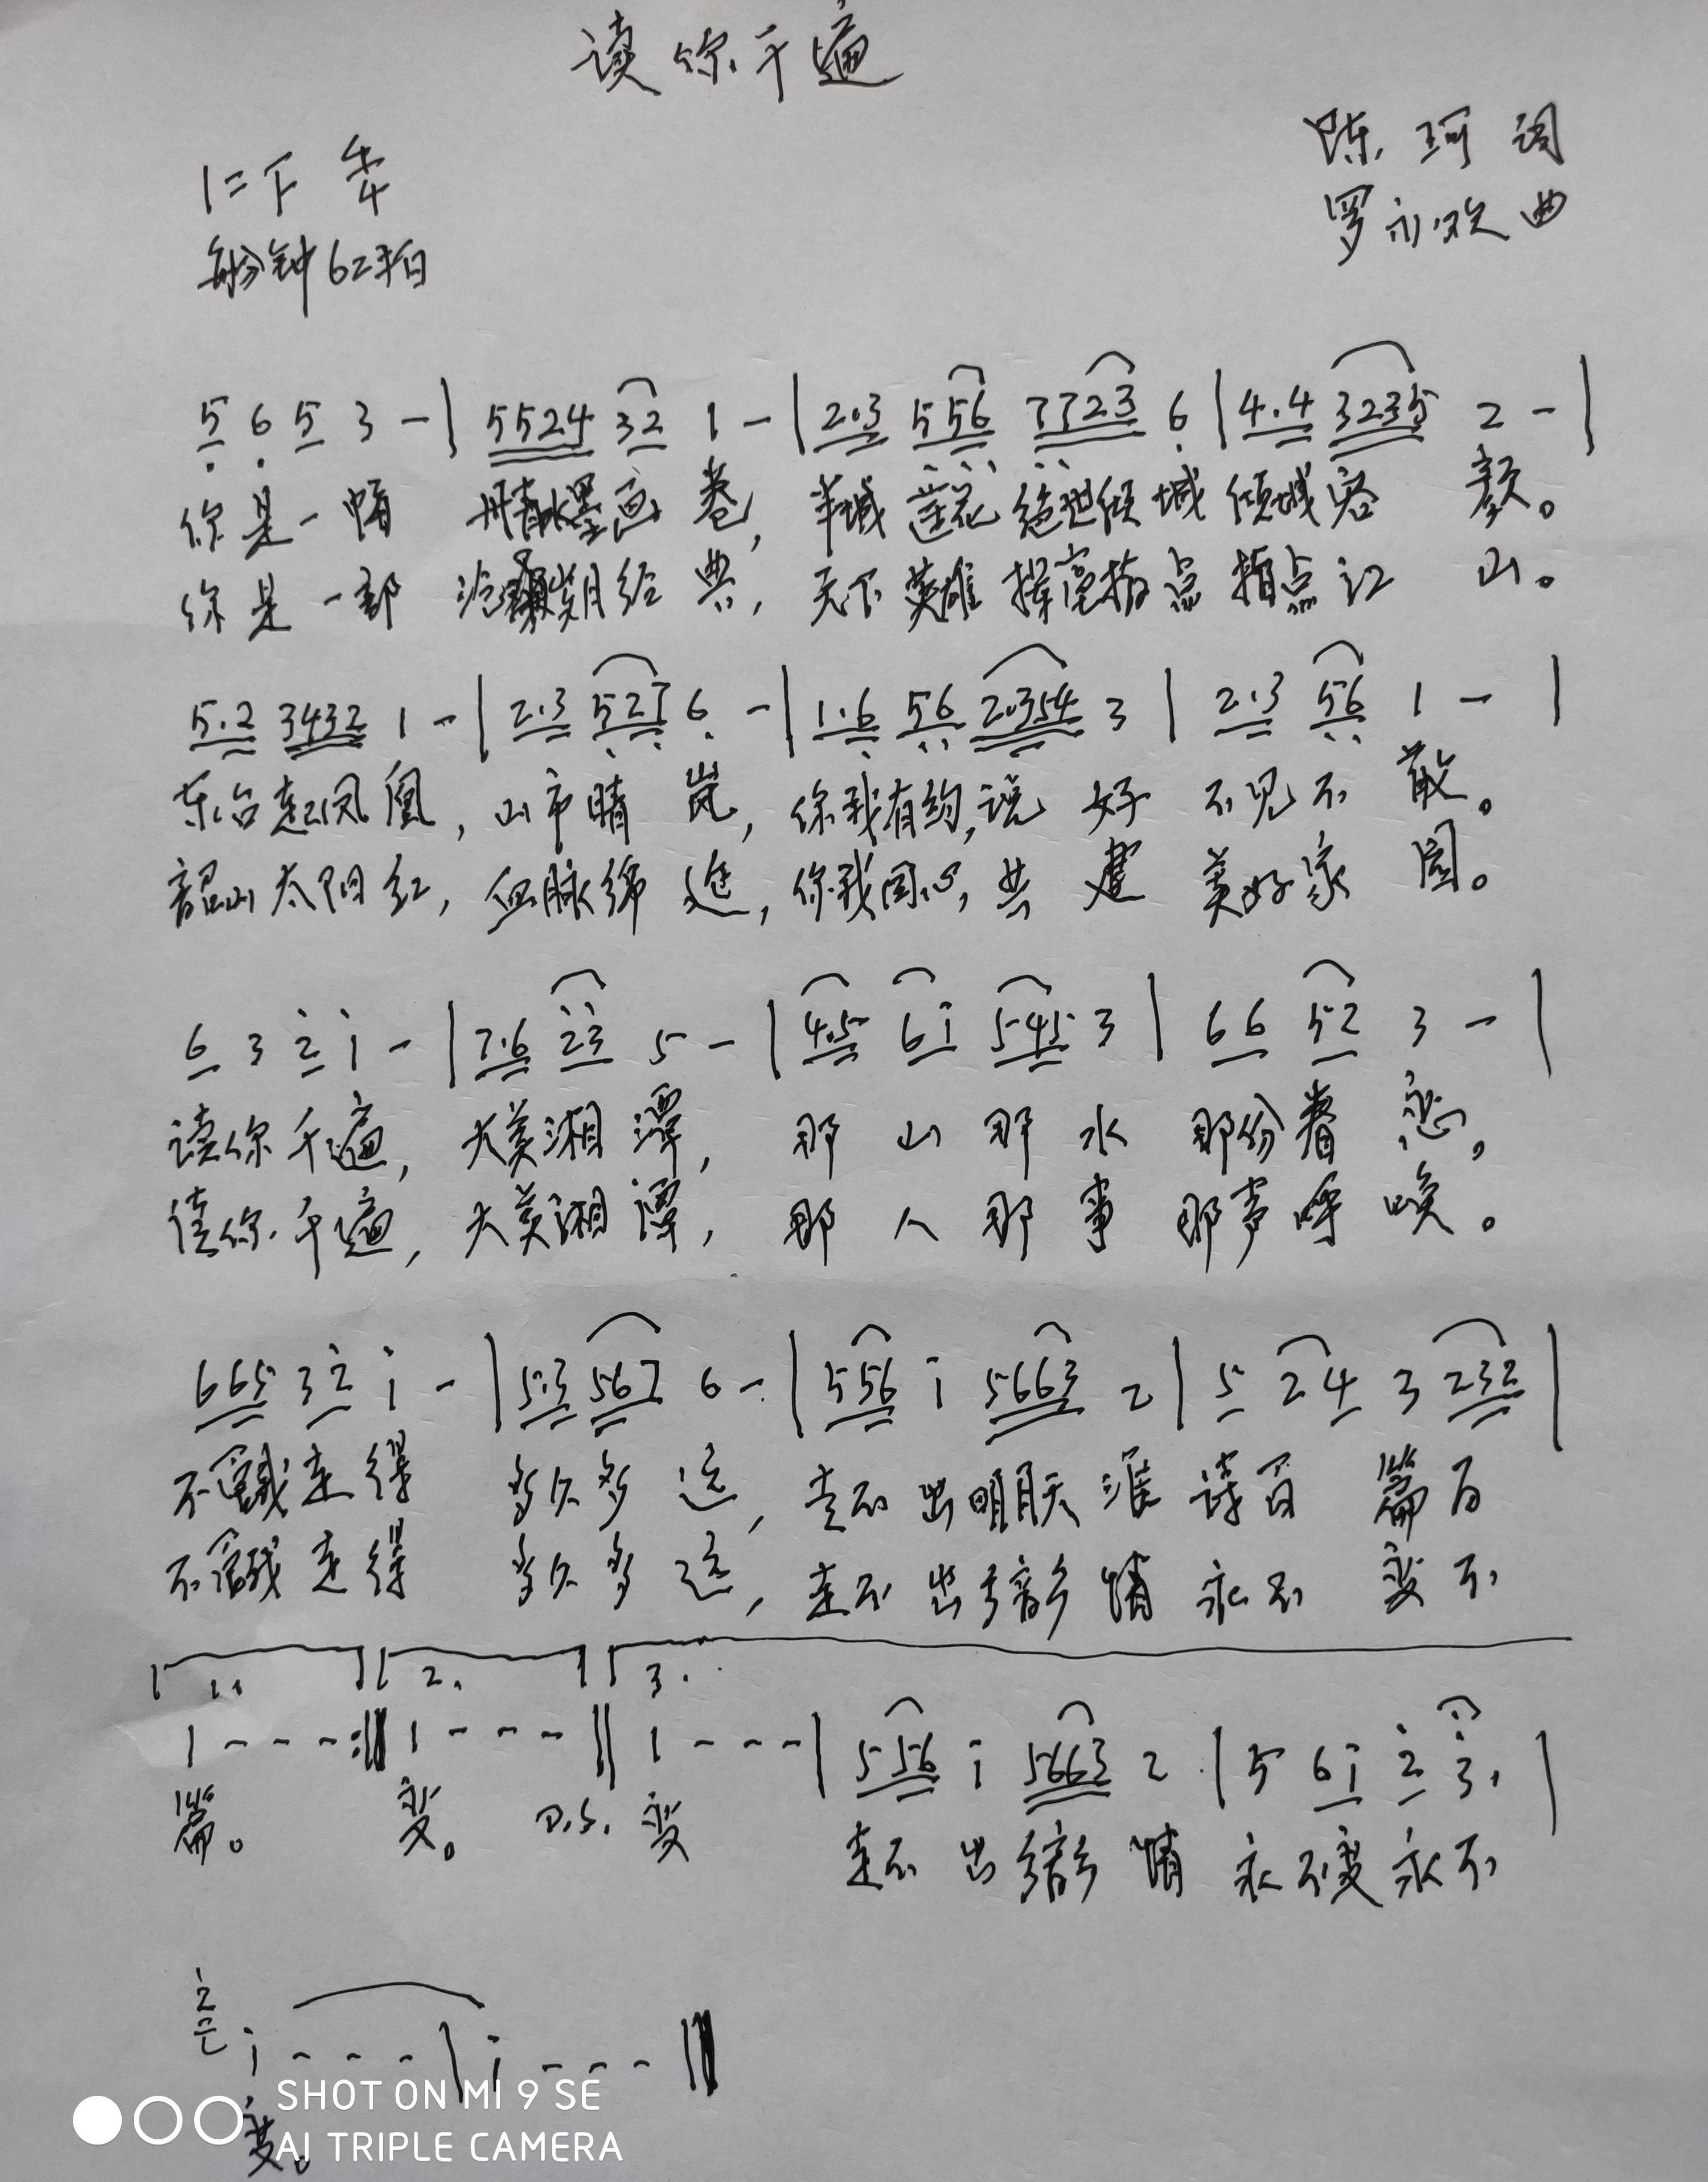 读你千遍
陈珂词
1=F 4/4
罗永欢曲
每分钟62拍
5 6 5 3 - | 5524 32 1 - | 2.3 556 7723 6 | 4.4 3235 2 - |
你是一幅 丹青水墨画卷，半城莲花绝世倾城倾城容颜。
你是一部 经典，天下英雄挥毫指点指点江山。
5.2 3432 1 - | 2.3 527 6 - | 1.6 56 2.354 3 | 2.3 56 1 - |
东台起凤凰，山市晴岚，你我有约，说好不见不散。
韶山太阳红，血脉绵延，你我同心，共建美好家园。
6 3 2 1 - | 7.6 23 5 - | 4.5 61 545 3 | 66 52 3 - |
读你千遍，大美湘潭，那山那水那份眷恋，
读你千遍，大美湘潭，那人那事那声呼唤。
665 32 1 - | 5.3 567 6 - | 556 1 5663 2 | 5 24 3 232 |
不管我走得 多久多远，走不出明月天涯诗百篇百
不管我走得 多久多远，走不出乡音乡情永不变不
1. 2. 3.
1 - - - :|| 1 - - - || 1 - - - | 556 1 5663 2 | 5 61 2 3. |
篇。 变。 D.S. 变 走不出乡音乡情永不变永不
2 1 - - - | 1 - - - ||
变。
SHOT ON MI 9 SE
AI TRIPLE CAMERA